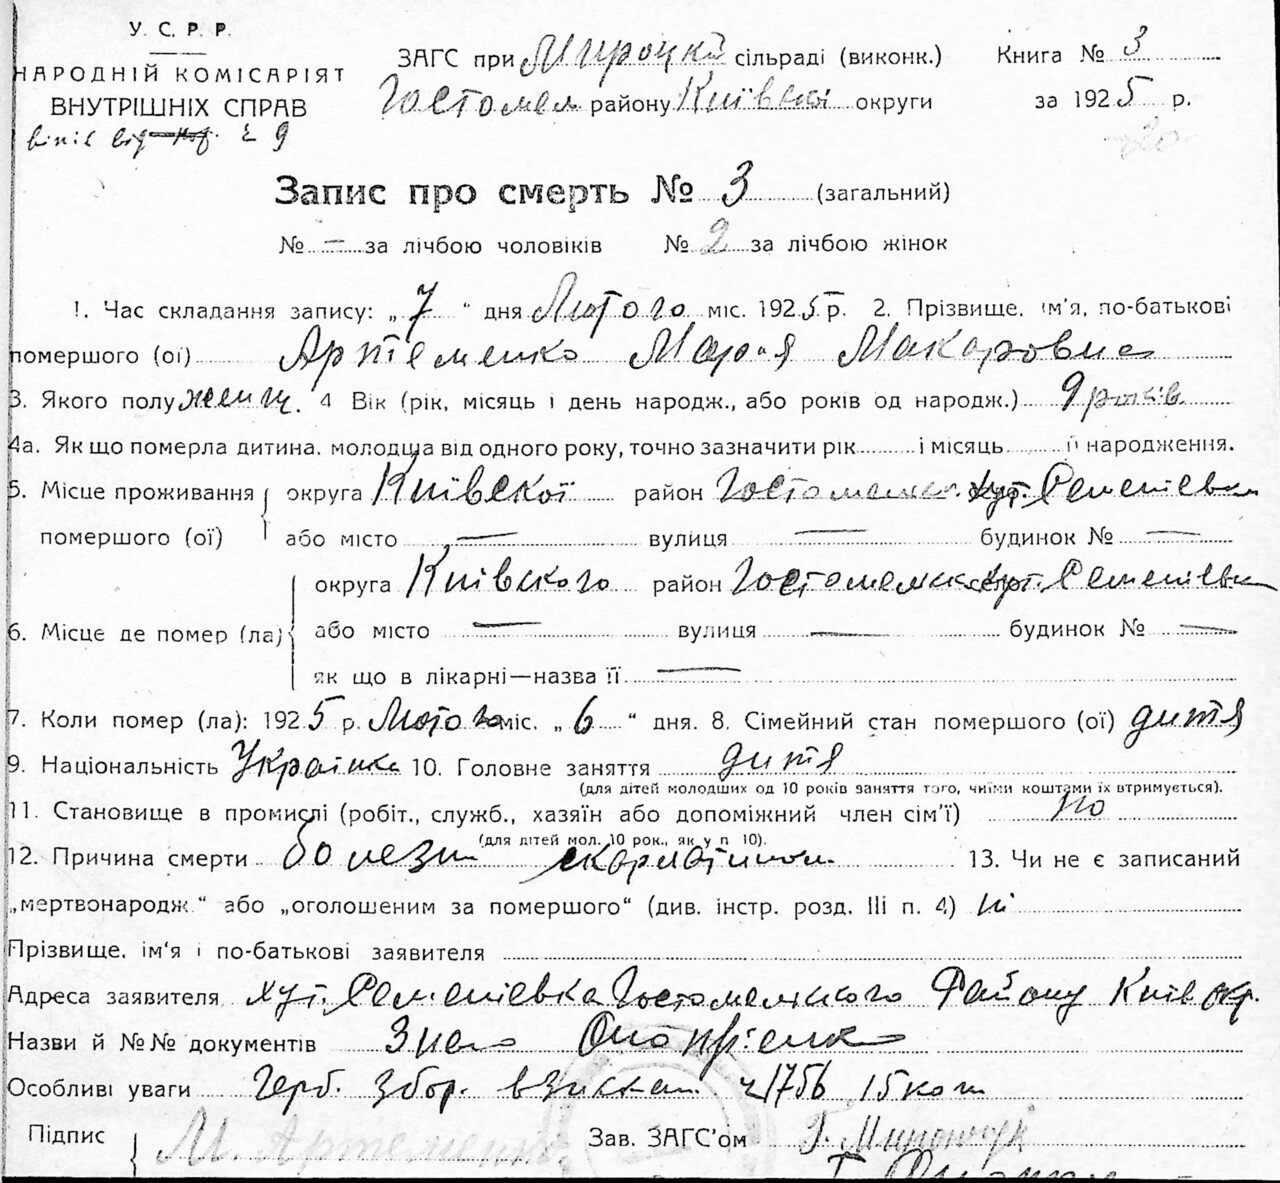 У. С. Р. Р.
НАРОДНІЙ КОМІСАРІЯТ
ВНУТРІШНІХ СПРАВ
ЗАГС при Мироцкій сільраді (виконк.) Книга № 3
Гостомел району Київскої округи за 1925 р.
Запис про смерть № 3 (загальний)
№ — за лічбою чоловіків № 2 за лічбою жінок
1. Час складання запису: „7“ дня Лютого міс. 1925 р. 2. Прізвище, ім'я, по-батькові
помершого (ої) Артеменко Марія Макаровна
3. Якого полу женщ. 4 Вік (рік, місяць і день народж., або років од народж.) 9 років
4а. Як що померла дитина, молодша від одного року, точно зазначити рік і місяць її народження.
5. Місце проживання помершого (ої) округа Київскої район Гостомельск. хут.
або місто — вулиця — будинок № —
6. Місце де помер (ла) округа Київского район Гостомельск хут.
або місто — вулиця — будинок № —
як що в лікарні—назва її —
7. Коли помер (ла): 1925 р. Лютого міс. „6“ дня. 8. Сімейний стан помершого (ої) дитя
9. Національність Українка 10. Головне заняття дитя
(для дітей молодших од 10 років заняття того, чиїми коштами їх втримується).
11. Становище в промислі (робіт., служб., хазяїн або допоміжний член сім'ї)
(для дітей мол. 10 рок., як у п 10).
12. Причина смерти болезн скарлатином 13. Чи не є записаний
„мертвонародж.“ або „оголошеним за помершого“ (див. інстр. розд. III п. 4) ні
Прізвище, ім'я і по-батькові заявителя
Адреса заявителя хут. Гостомельского Району Київ окр.
Назви й №№ документів
Особливі уваги Герб. збор. взискан 15 коп
Підпис М. Артеменко Зав. ЗАГС'ом